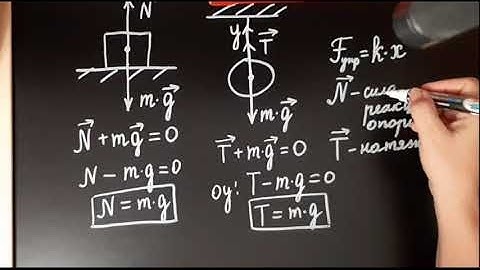 N
m·g⃗
N⃗+mg⃗=0
N−m·g=0
N=m·g
y
T⃗
m·g⃗
T⃗+m·g⃗=0
оу: T−m·g=0
T=m·g
Fупр=k·x
N⃗-сила
реак
опор
T⃗-натяж